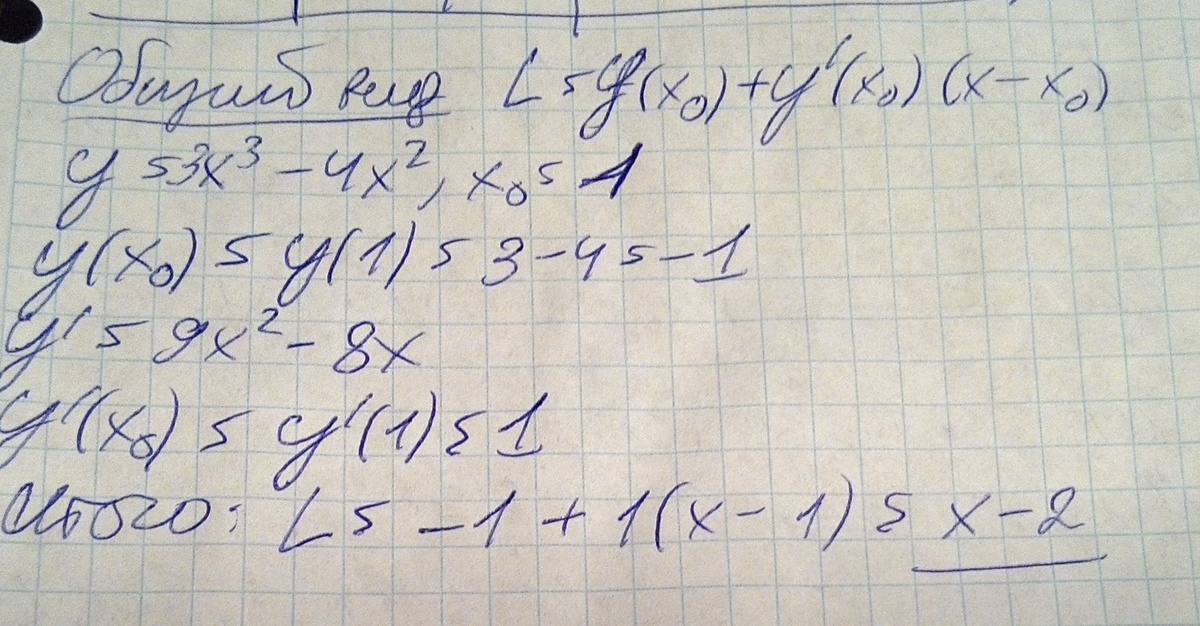 Общий вид L = y(x₀) + y'(x₀)(x - x₀)
y = 3x³ - 4x², x₀ = 1
y(x₀) = y(1) = 3 - 4 = -1
y' = 9x² - 8x
y'(x₀) = y'(1) = 1
Итого: L = -1 + 1(x - 1) = x - 2